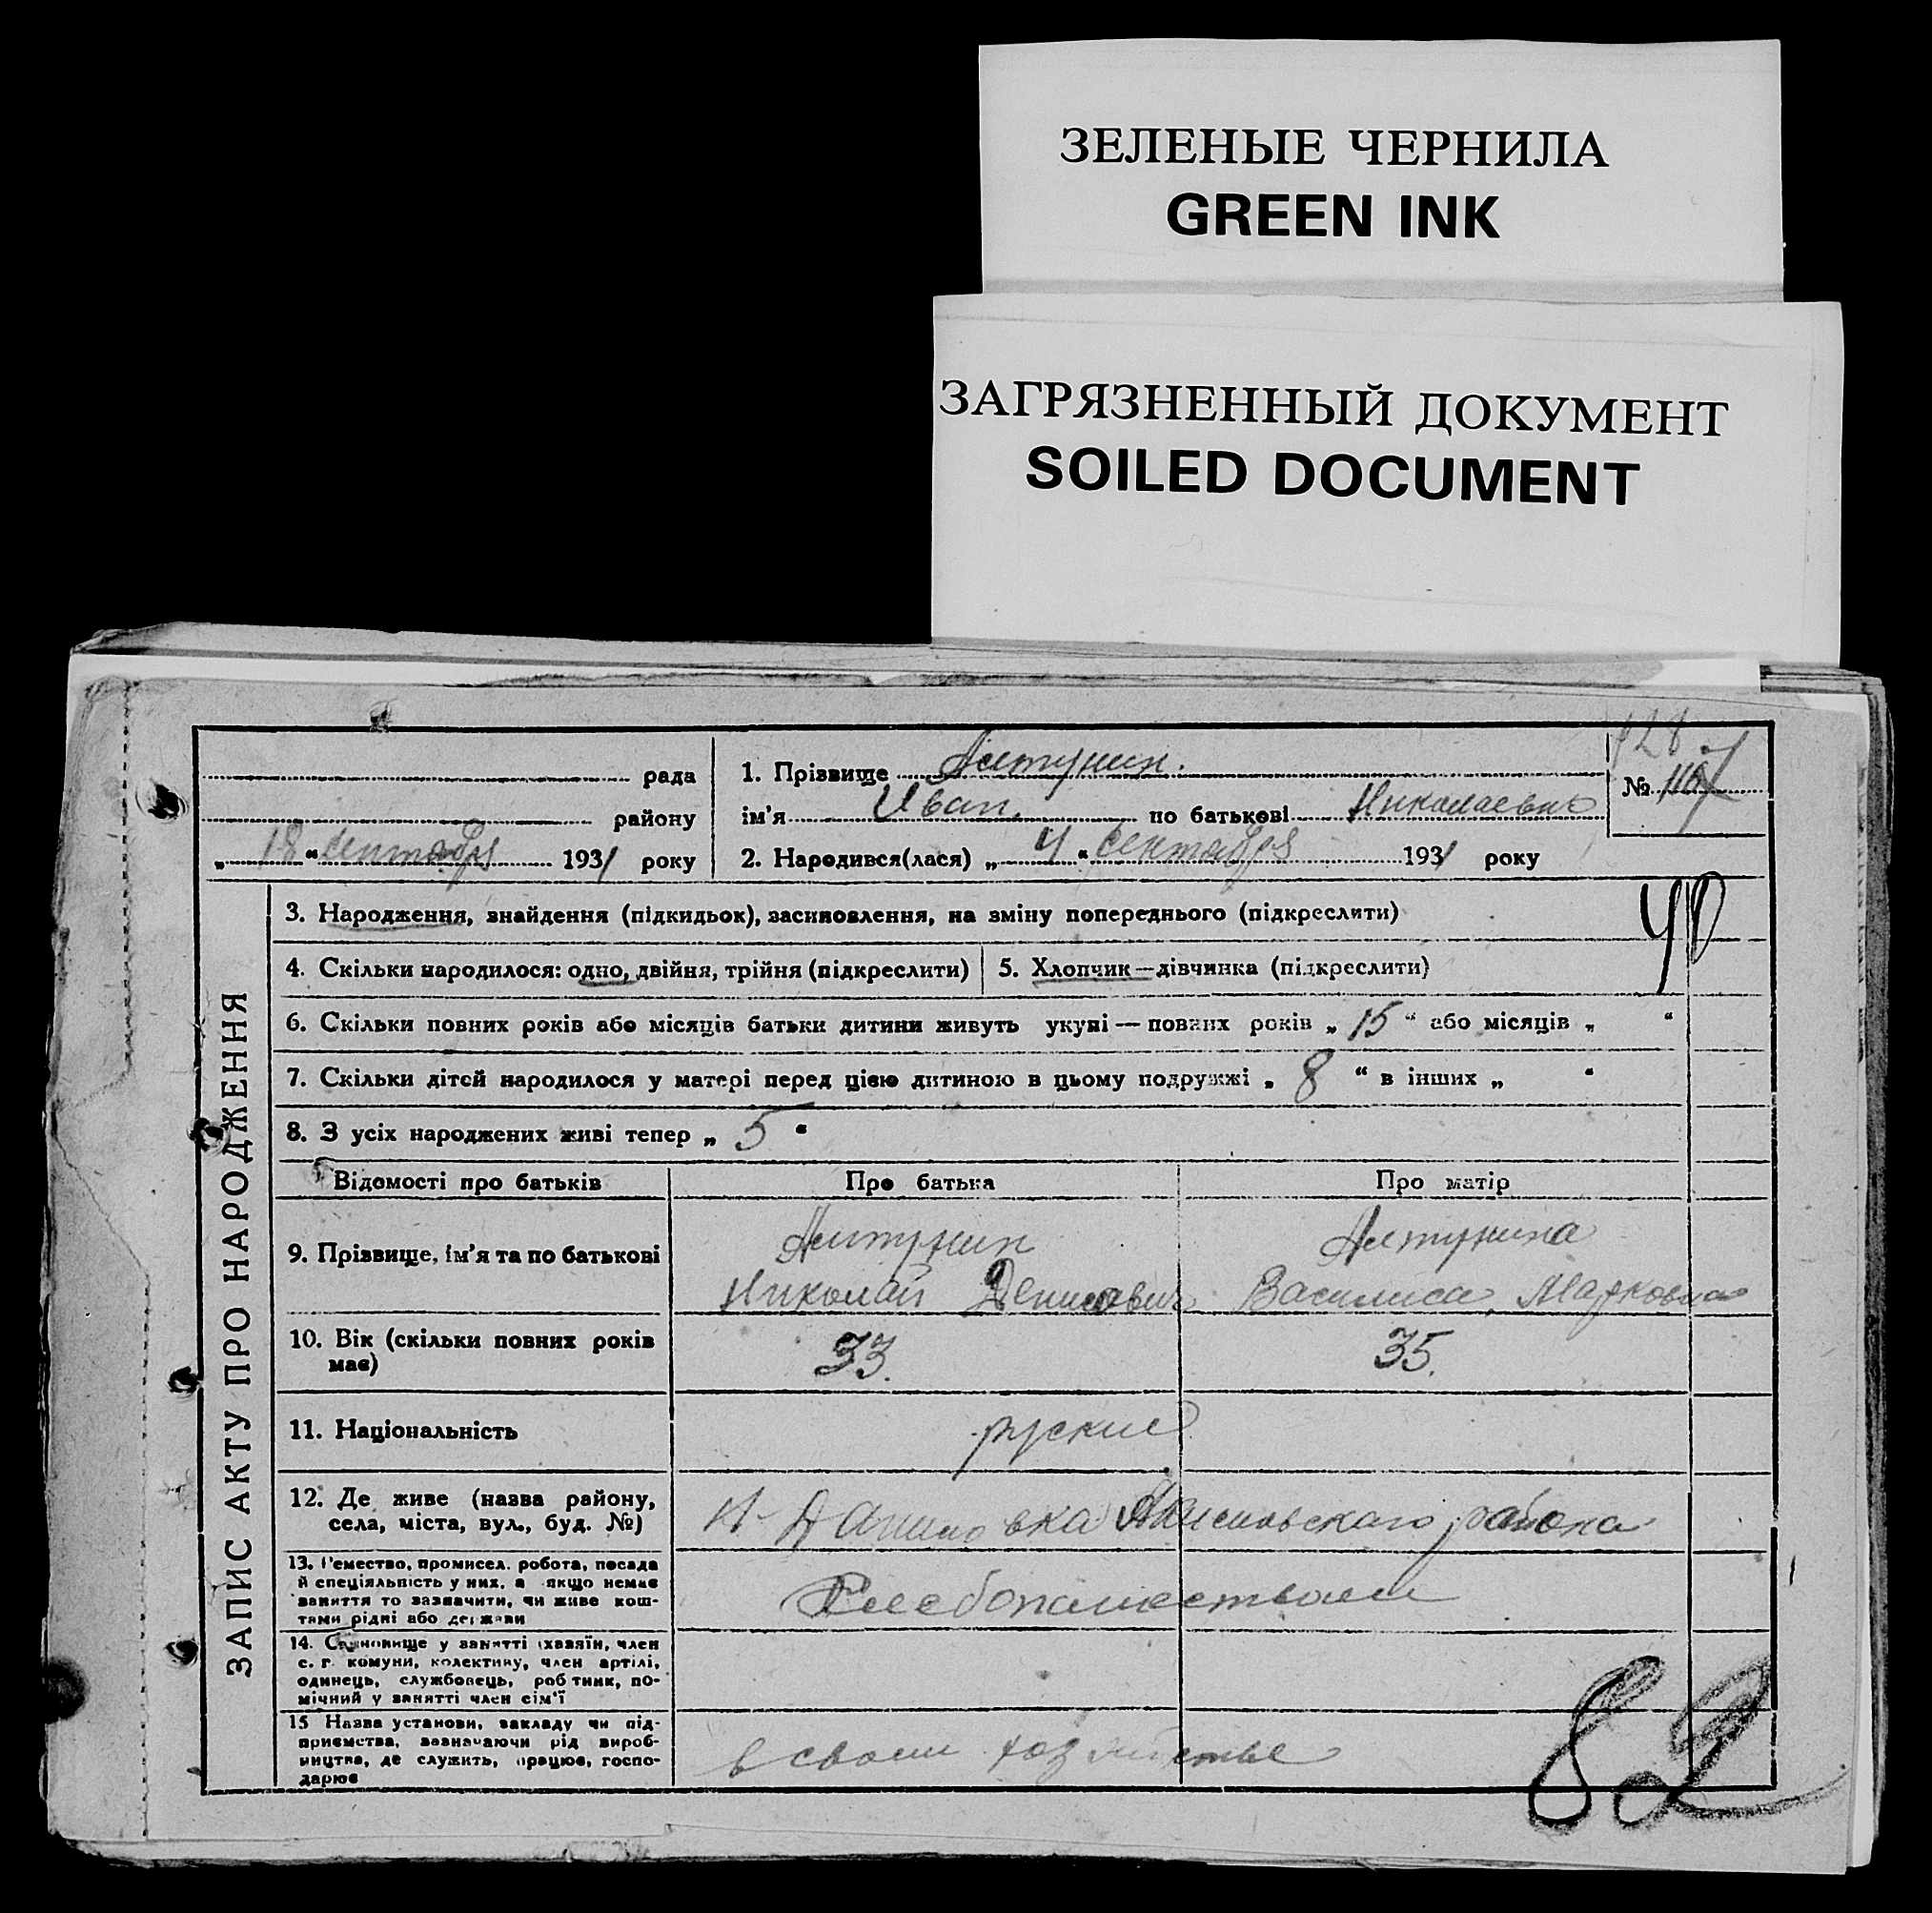 ЗЕЛЕНЫЕ ЧЕРНИЛА
GREEN INK
ЗАГРЯЗНЕННЫЙ ДОКУМЕНТ
SOILED DOCUMENT
128
рада
району
„ 18 “ сентября 1931 року
1. Прізвище Алтунин.
ім'я Иван. по батькові Николаевич
№
2. Народився(лася) „ 4 “ сентября 1931 року
ЗАПИС АКТУ ПРО НАРОДЖЕННЯ
3. Народження, знайдення (підкидьок), засиновлення, на зміну попереднього (підкреслити)
4. Скільки народилося: одно, двійня, трійня (підкреслити)
5. Хлопчик—дівчинка (підкреслити)
6. Скільки повних років або місяців батьки дитини живуть укупі — повних років „ 15 “ або місяців „ “
7. Скільки дітей народилося у матері перед цією дитиною в цьому подружжі „ 8 “ в інших „ “
8. З усіх народжених живі тепер „ 5 “
Відомості про батьків Про батька Про матір
9. Прізвище, ім'я та по батькові
Алтунин
Николай Денисович
Алтунина
Василиса Марковна
10. Вік (скільки повних років
має)
33.
35.
11. Національність
руские
12. Де живе (назва району,
села, міста, вул., буд. №)
района
13. Ремество, промисел. робота, посада
й спеціяльність у них, а якщо немає
заняття то зазначити, чи живе кош-
тами рідні або держави
Хлебопашеством
14. Становище у занятті (хазяїн, член
с. г. комуни, колективу, член артілі,
одинець, службовець, робітник, по-
мічний у занятті член сім'ї
15 Назва установи, закладу чи під-
приємства, зазначаючи рід вироб-
ництва, де служить, працює, госпо-
дарює
в своем хозяйстве
82